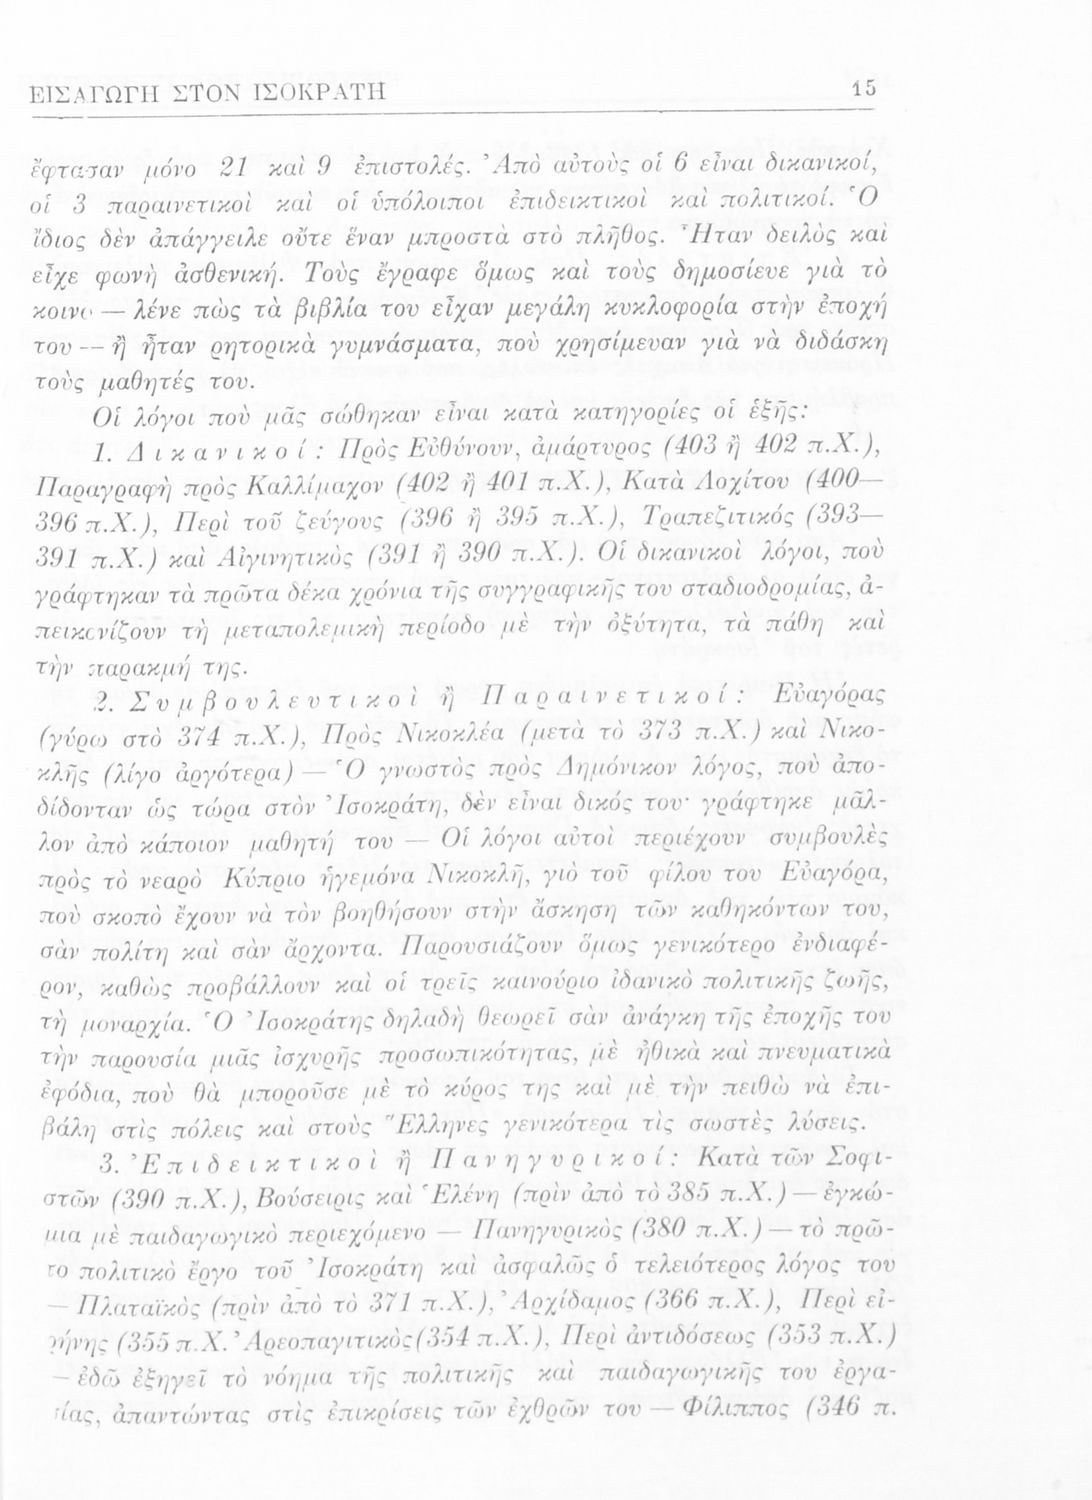 ΕΙΣΑΓΩΓΗ ΣΤΟΝ ΙΣΟΚΡΑΤΗ 15
ἔφτασαν μόνο 21 καὶ 9 ἐπιστολές. Ἀπὸ αὐτοὺς οἱ 6 εἶναι δικανικοί,
οἱ 3 παραινετικοὶ καὶ οἱ ὑπόλοιποι ἐπιδεικτικοὶ καὶ πολιτικοί. Ὁ
ἴδιος δὲν ἀπάγγειλε οὔτε ἕναν μπροστὰ στὸ πλῆθος. Ἦταν δειλὸς καὶ
εἶχε φωνὴ ἀσθενική. Τοὺς ἔγραφε ὅμως καὶ τοὺς δημοσίευε γιὰ τὸ
κοινὸ — λένε πὼς τὰ βιβλία του εἶχαν μεγάλη κυκλοφορία στὴν ἐποχή
του — ἢ ἦταν ρητορικὰ γυμνάσματα, ποὺ χρησίμευαν γιὰ νὰ διδάσκη
τοὺς μαθητές του.
Οἱ λόγοι ποὺ μᾶς σώθηκαν εἶναι κατὰ κατηγορίες οἱ ἑξῆς:
1. Δικανικοί: Πρὸς Εὐθύνουν, ἀμάρτυρος (403 ἢ 402 π.Χ.),
Παραγραφὴ πρὸς Καλλίμαχον (402 ἢ 401 π.Χ.), Κατὰ Λοχίτου (400—
396 π.Χ.), Περὶ τοῦ ζεύγους (396 ἢ 395 π.Χ.), Τραπεζιτικός (393—
391 π.Χ.) καὶ Αἰγινητικὸς (391 ἢ 390 π.Χ.). Οἱ δικανικοὶ λόγοι, ποὺ
γράφτηκαν τὰ πρῶτα δέκα χρόνια τῆς συγγραφικῆς του σταδιοδρομίας, ἀ-
πεικονίζουν τὴ μεταπολεμικὴ περίοδο μὲ τὴν ὀξύτητα, τὰ πάθη καὶ
τὴν παρακμή της.
2. Συμβουλευτικοὶ ἢ Παραινετικοί: Εὐαγόρας
(γύρω στὸ 374 π.Χ.), Πρὸς Νικοκλέα (μετὰ τὸ 373 π.Χ.) καὶ Νικο-
κλῆς (λίγο ἀργότερα) — Ὁ γνωστὸς πρὸς Δημόνικον λόγος, ποὺ ἀπο-
δίδονταν ὡς τώρα στὸν Ἰσοκράτη, δὲν εἶναι δικός του· γράφτηκε μᾶλ-
λον ἀπὸ κάποιον μαθητή του — Οἱ λόγοι αὐτοὶ περιέχουν συμβουλὲς
πρὸς τὸ νεαρὸ Κύπριο ἡγεμόνα Νικοκλῆ, γιὸ τοῦ φίλου του Εὐαγόρα,
ποὺ σκοπὸ ἔχουν νὰ τὸν βοηθήσουν στὴν ἄσκηση τῶν καθηκόντων του,
σὰν πολίτη καὶ σὰν ἄρχοντα. Παρουσιάζουν ὅμως γενικότερο ἐνδιαφέ-
ρον, καθὼς προβάλλουν καὶ οἱ τρεῖς καινούριο ἰδανικὸ πολιτικῆς ζωῆς,
τὴ μοναρχία. Ὁ Ἰσοκράτης δηλαδὴ θεωρεῖ σὰν ἀνάγκη τῆς ἐποχῆς του
τὴν παρουσία μιᾶς ἰσχυρῆς προσωπικότητας, μὲ ἠθικὰ καὶ πνευματικὰ
ἐφόδια, ποὺ θὰ μποροῦσε μὲ τὸ κύρος της καὶ μὲ τὴν πειθὼ νὰ ἐπι-
βάλη στὶς πόλεις καὶ στοὺς Ἕλληνες γενικότερα τὶς σωστὲς λύσεις.
3. Ἐπιδεικτικοὶ ἢ Πανηγυρικοί: Κατὰ τῶν Σοφι-
στῶν (390 π.Χ.), Βούσειρις καὶ Ἑλένη (πρὶν ἀπὸ τὸ 385 π.Χ.) — ἐγκώ-
μια μὲ παιδαγωγικὸ περιεχόμενο — Πανηγυρικὸς (380 π.Χ.) — τὸ πρῶ-
το πολιτικὸ ἔργο τοῦ Ἰσοκράτη καὶ ἀσφαλῶς ὁ τελειότερος λόγος του
— Πλαταϊκὸς (πρὶν ἀπὸ τὸ 371 π.Χ.), Ἀρχίδαμος (366 π.Χ.), Περὶ εἰ-
ρήνης (355 π.Χ. Ἀρεοπαγιτικὸς (354 π.Χ.), Περὶ ἀντιδόσεως (353 π.Χ.)
— ἐδῶ ἐξηγεῖ τὸ νόημα τῆς πολιτικῆς καὶ παιδαγωγικῆς του ἐργα-
σίας, ἀπαντώντας στὶς ἐπικρίσεις τῶν ἐχθρῶν του — Φίλιππος (346 π.